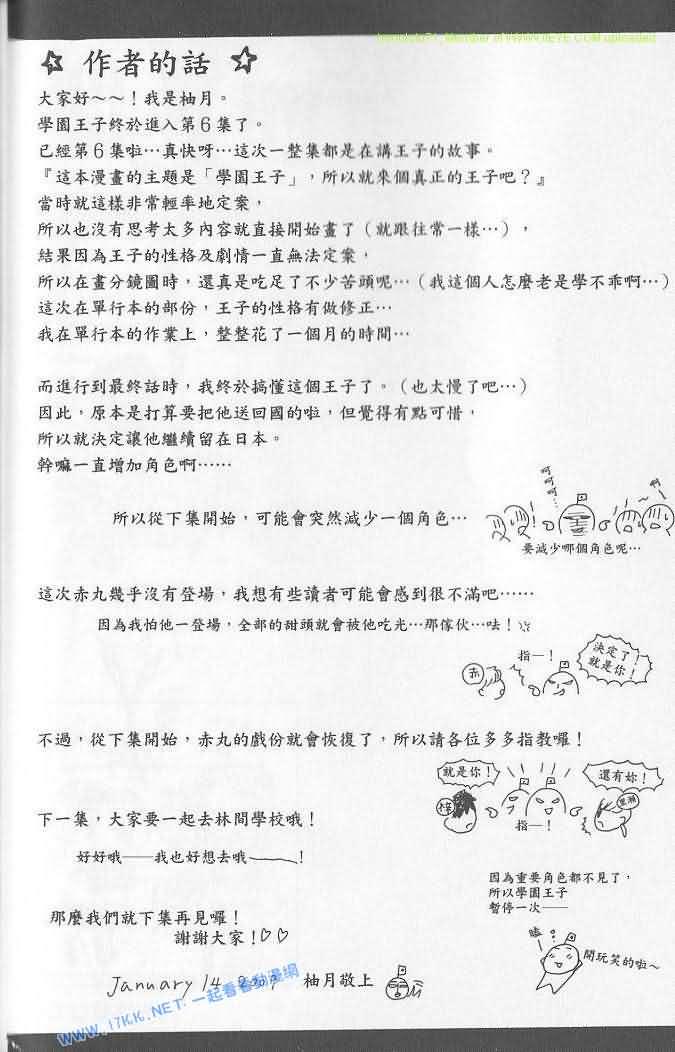 ☆ 作者的話 ☆
大家好～～！我是柚月。
學園王子終於進入第6集了。
已經第6集啦…真快呀…這次一整集都是在講王子的故事。
『這本漫畫的主題是「學園王子」，所以就來個真正的王子吧？』
當時就這樣非常輕率地定案，
所以也沒有思考太多內容就直接開始畫了（就跟往常一樣…），
結果因為王子的性格及劇情一直無法定案，
所以在畫分鏡圖時，還真是吃足了不少苦頭呢…（我這個人怎麼老是學不乖啊…）
這次在單行本的部份，王子的性格有做修正…
我在單行本的作業上，整整花了一個月的時間…
而進行到最終話時，我終於搞懂這個王子了。（也太慢了吧…）
因此，原本是打算要把他送回國的啦，但覺得有點可惜，
所以就決定讓他繼續留在日本。
幹嘛一直增加角色啊……
呵呵呵…
啊
所以從下集開始，可能會突然減少一個角色…
要減少哪個角色呢…
這次赤丸幾乎沒有登場，我想有些讀者可能會感到很不滿吧……
因為我怕他一登場，全部的甜頭就會被他吃光…那傢伙…呿！
赤
指—！
決定了！
就是你！
不過，從下集開始，赤丸的戲份就會恢復了，所以請各位多多指教囉！
就是你！
還有妳！
梓
黑瀨
指—！
下一集，大家要一起去林間學校哦！
好好哦——我也好想去哦———！
因為重要角色都不見了，
所以學園王子
暫停一次——
那麼我們就下集再見囉！
謝謝大家！♡♡
嗑
開玩笑的啦～
January 14 2009 柚月敬上
WWW.17KK.NET 一起看看動漫網